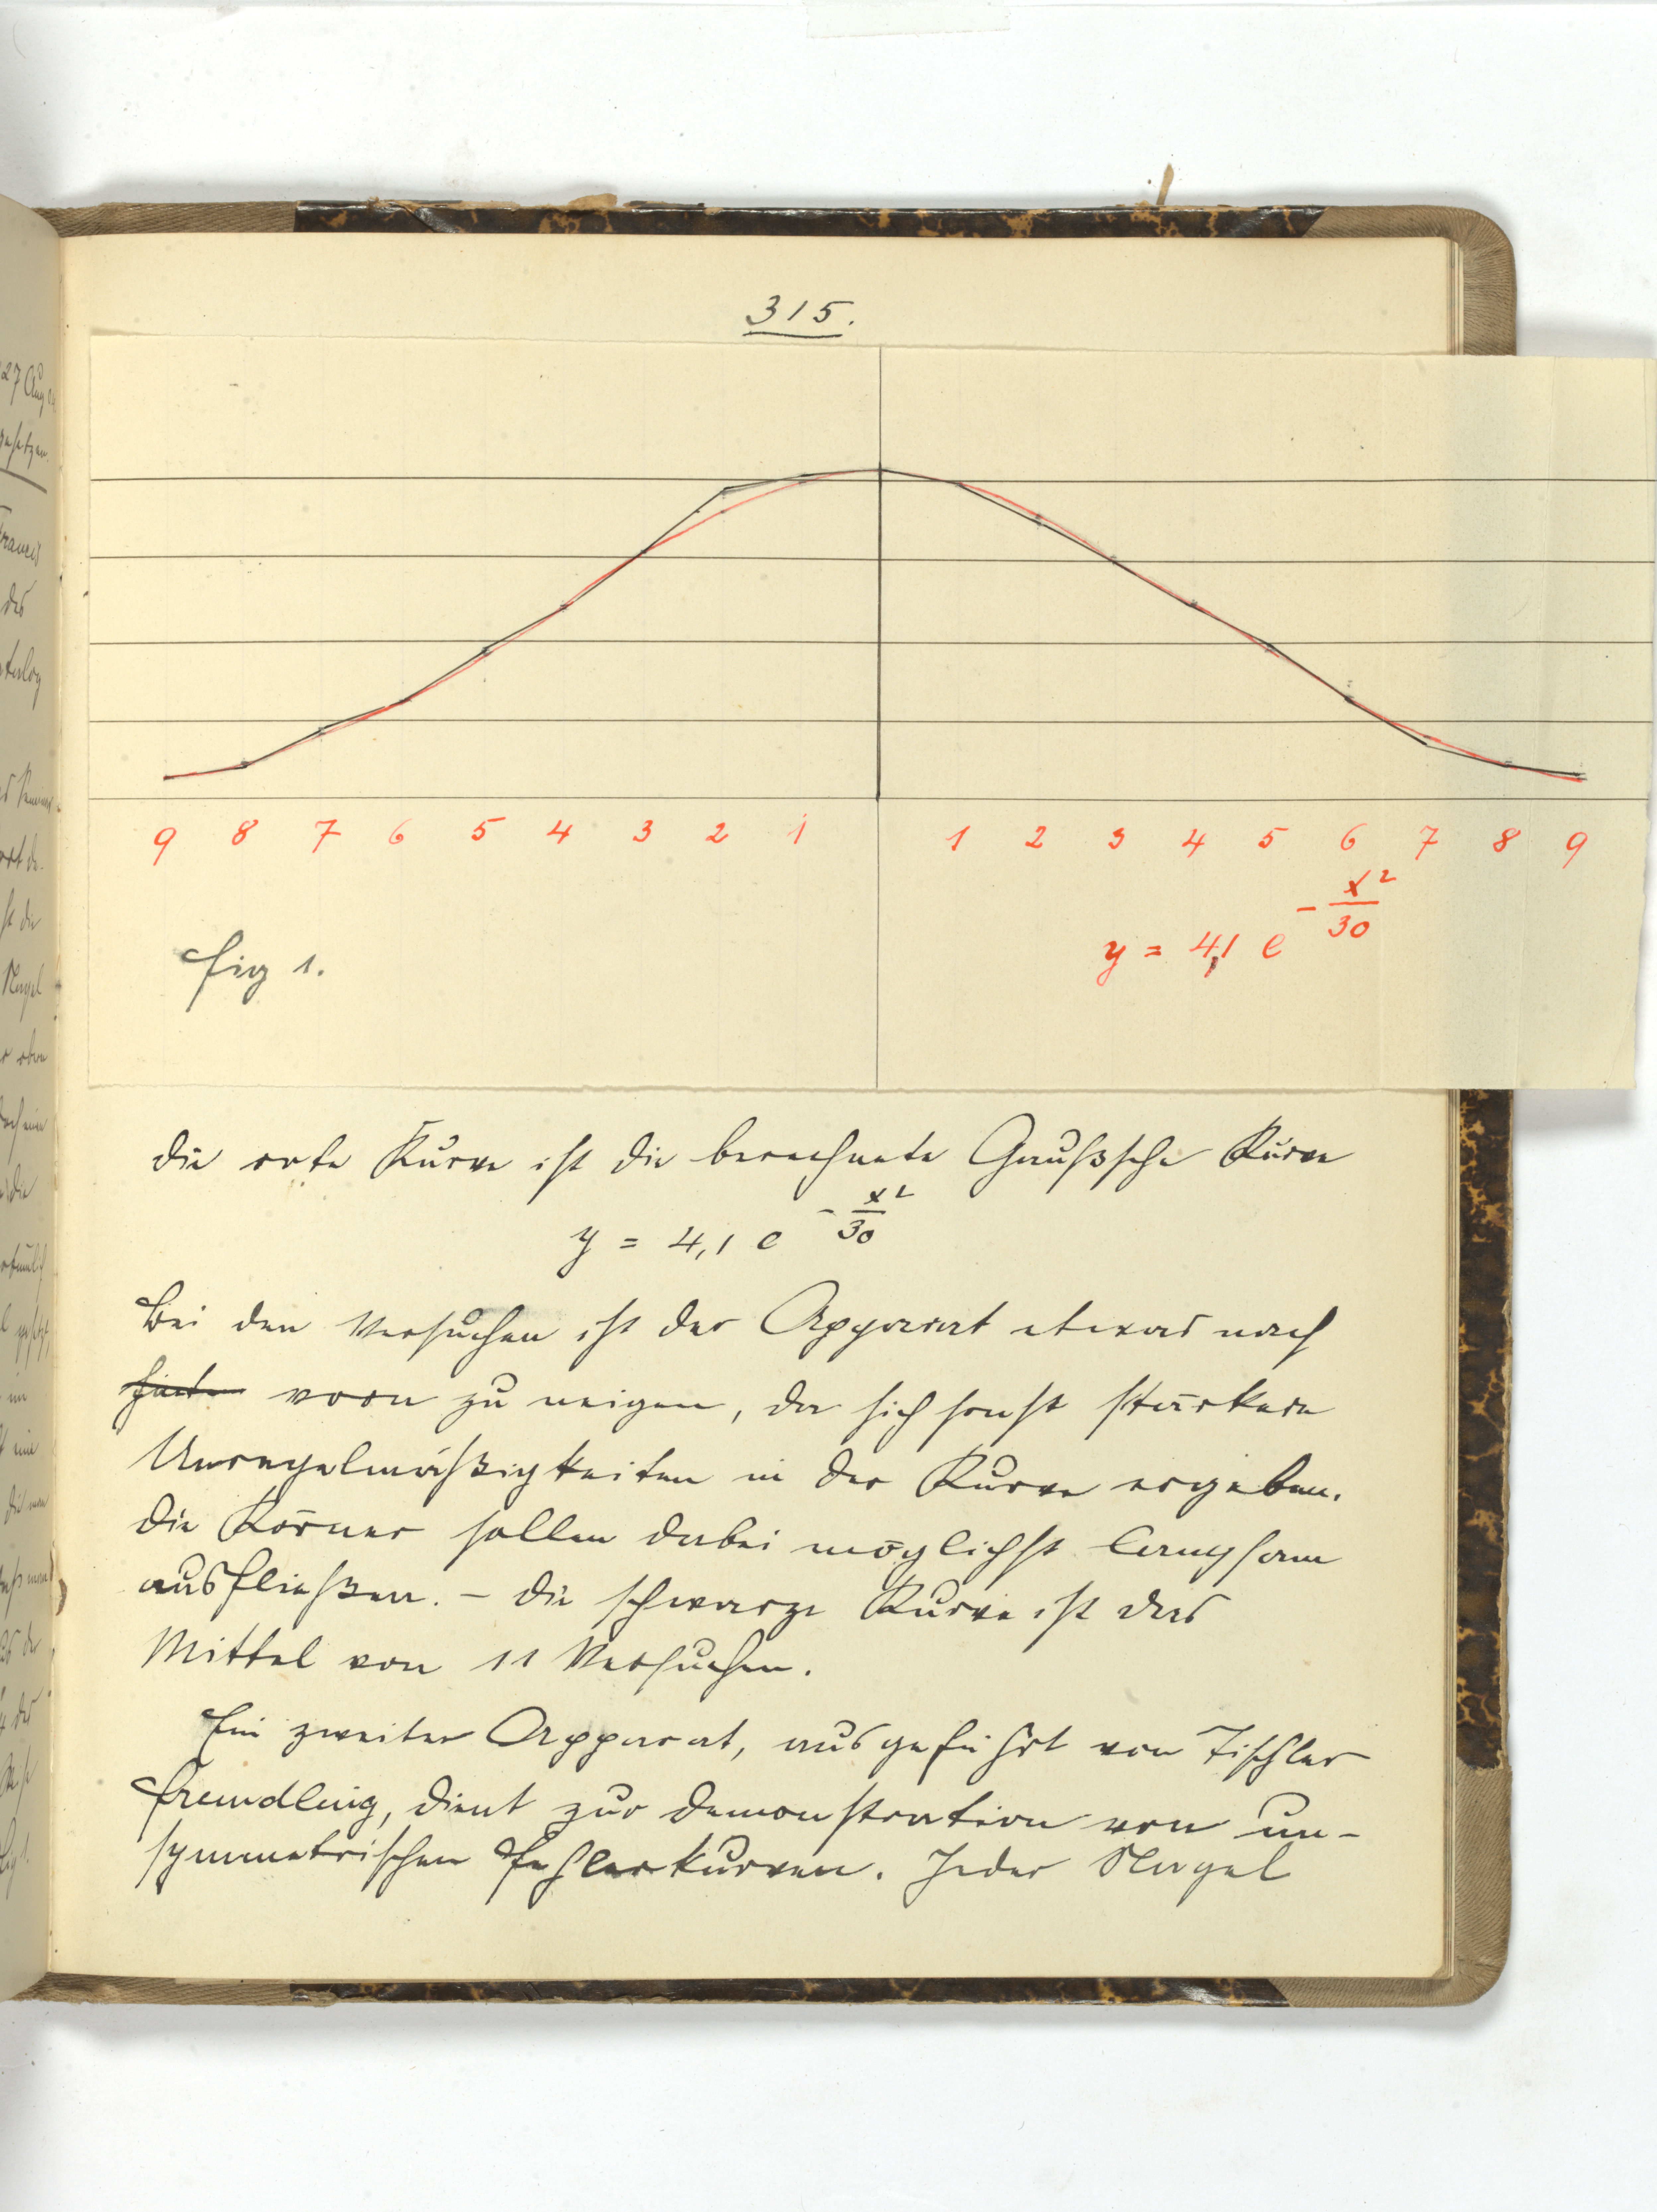 315.
9 8 7 6 5 4 3 2 1 1 2 3 4 5 6 7 8 9
y = 4,1 e^{-x²/30}
Fig 1.
Die rote Kurve ist die berechnete Gaußsche Kurve
y = 4,1 e^{-x²/30}
Bei den Versuchen ist der Apparat etwas nach
vorn zu neigen, da sich sonst stärkere
Unregelmäßigkeiten in der Kurve ergeben.
Die Körner sollen dabei möglichst langsam
ausfließen. – Die schwarze Kurve ist das
Mittel von 11 Versuchen.
Ein zweiter Apparat, ausgeführt von Tischler
Fremdling, dient zur Demonstration von un-
symmetrischen Fehlerkurven. Jeder Nagel
27 Aug